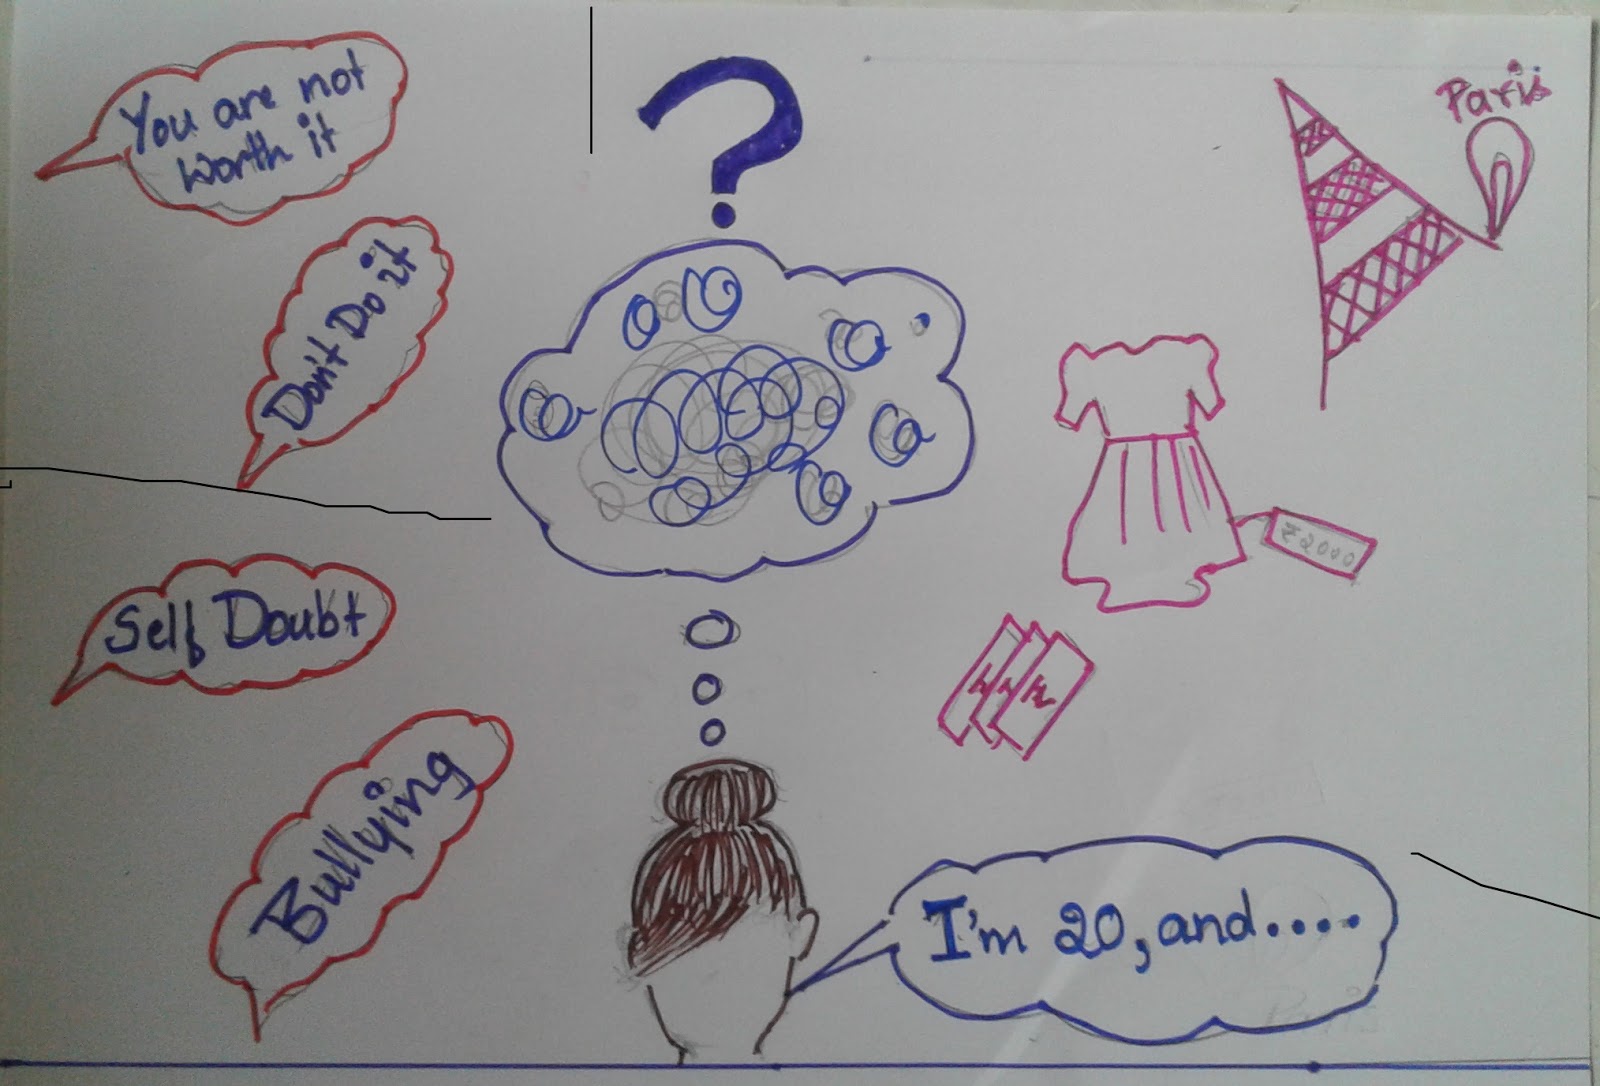 You are not
worth it
Don't Do it
Self Doubt
Bullying
?
Paris
₹2000
I'm 20, and....